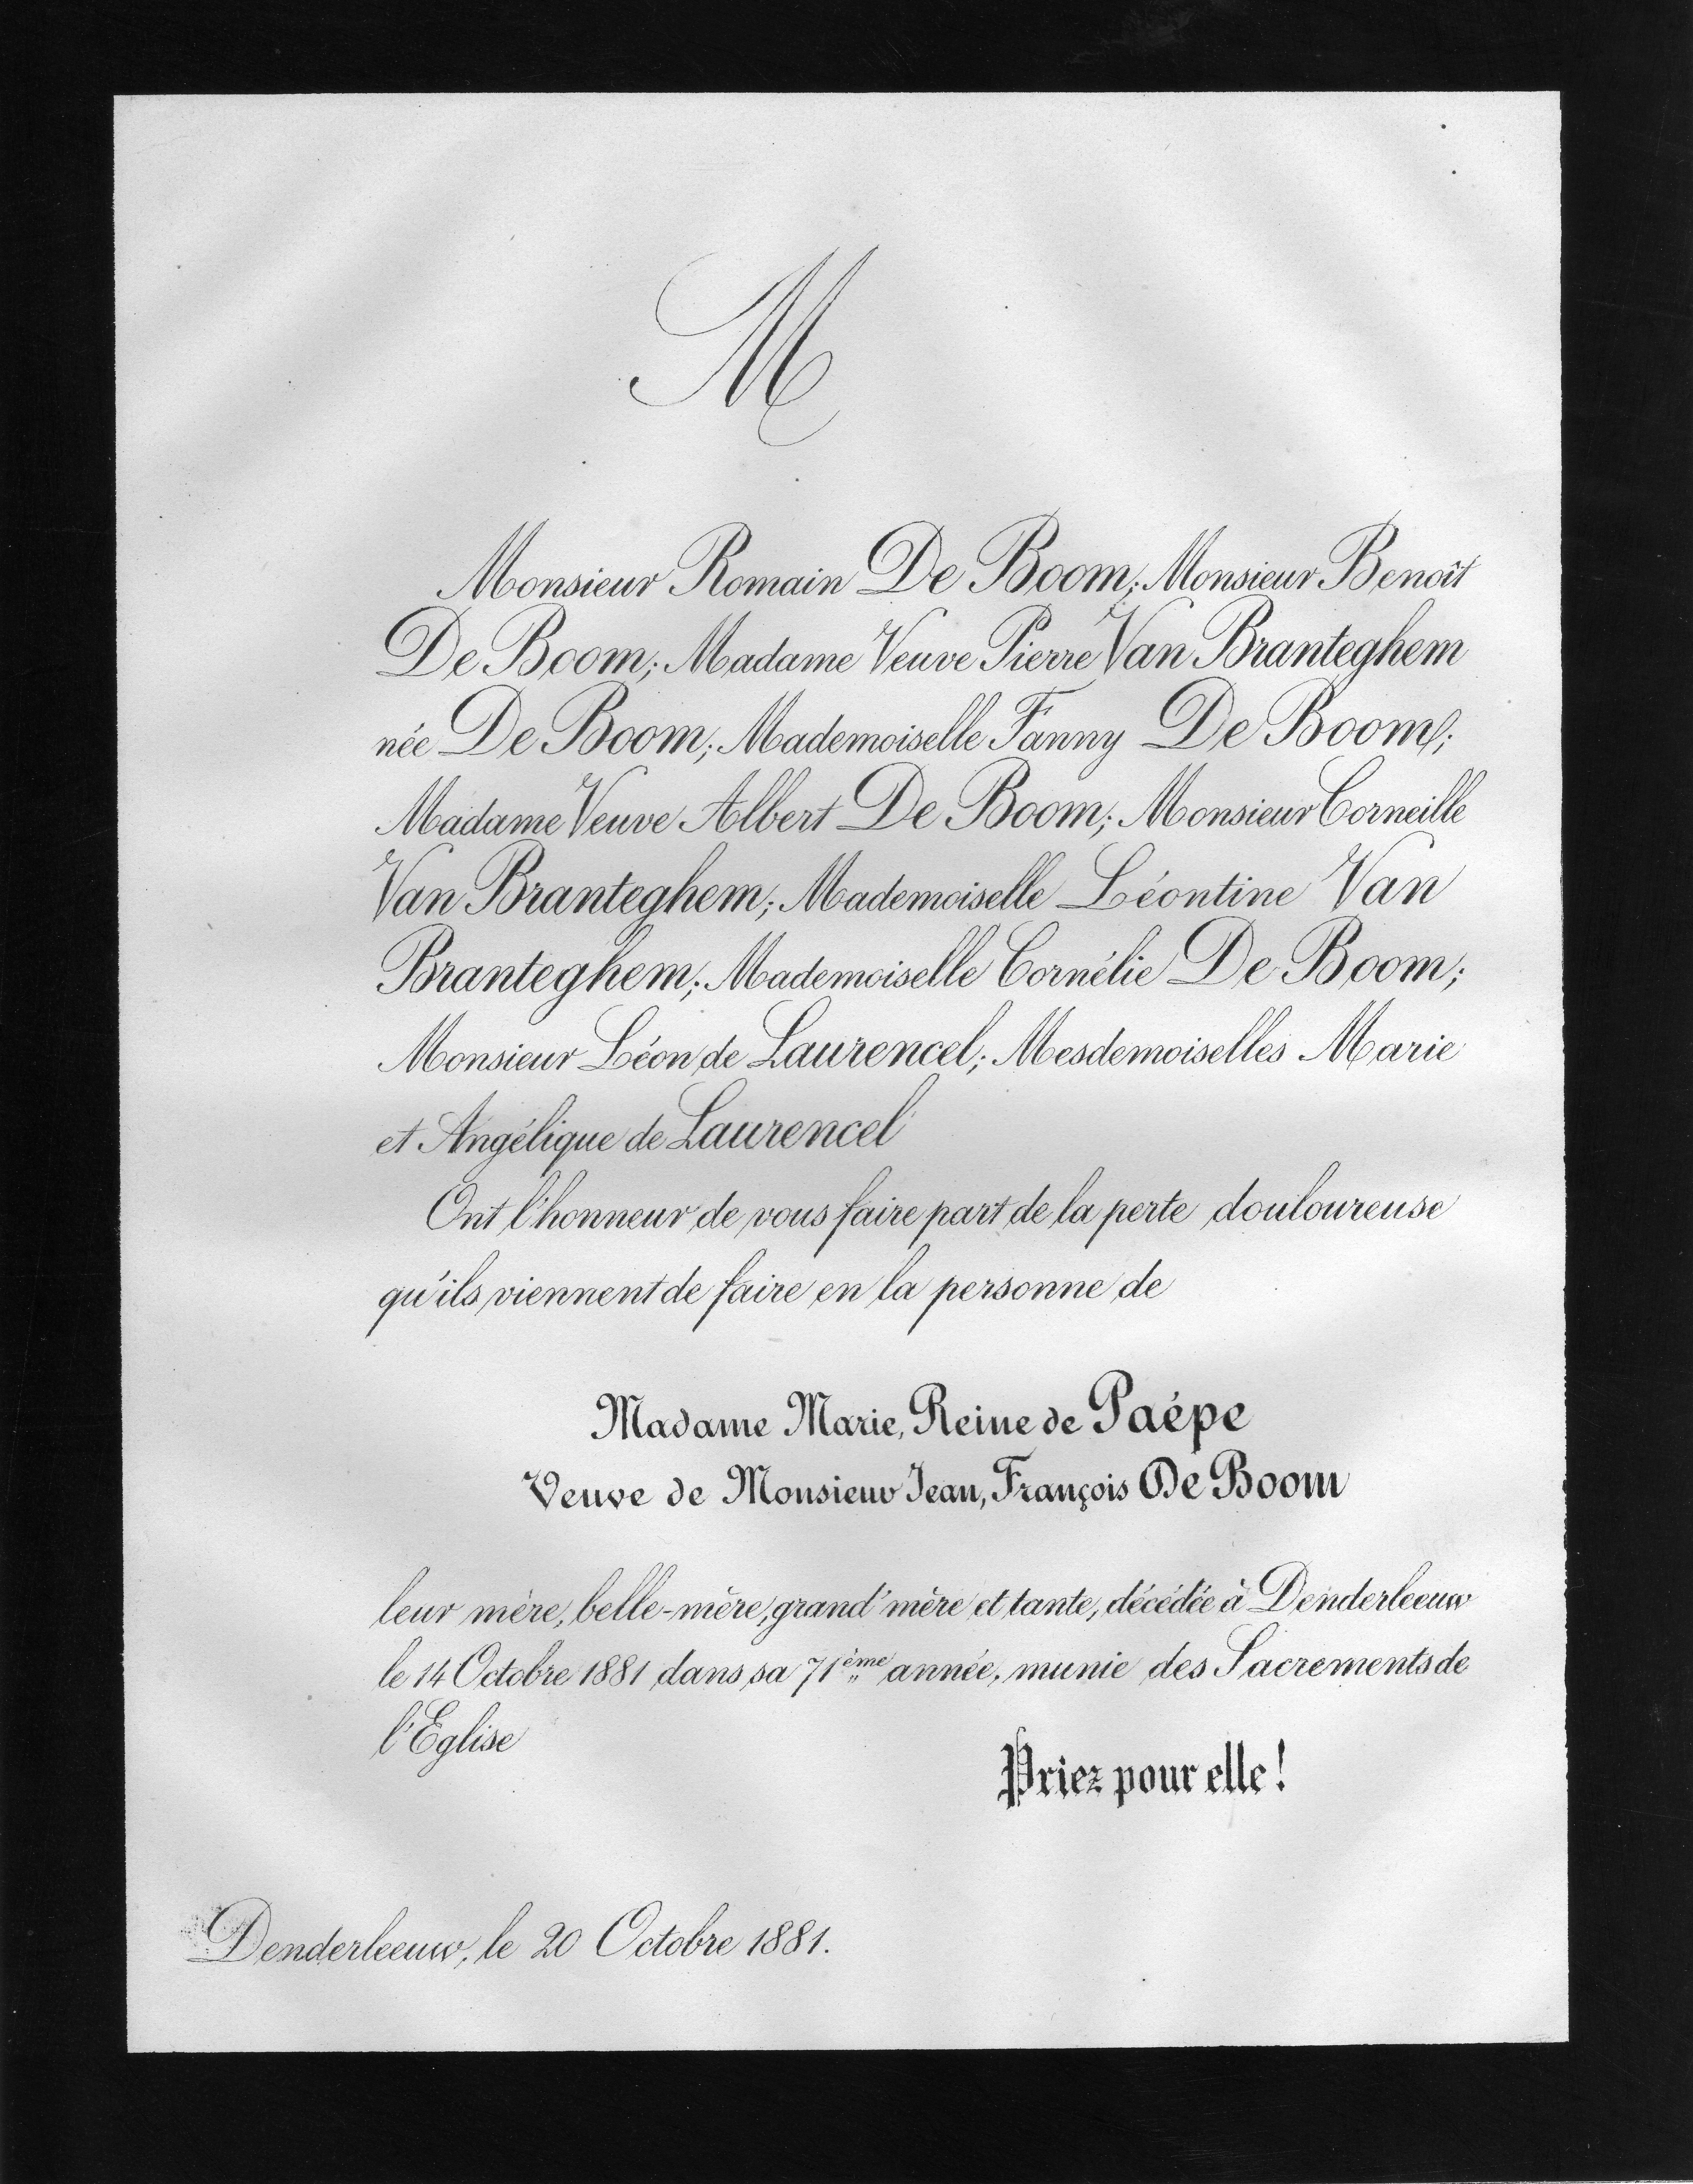 M
Monsieur Romain De Boom; Monsieur Benoît
De Boom; Madame Veuve Pierre Van Branteghem
née De Boom; Mademoiselle Fanny De Boom;
Madame Veuve Albert De Boom; Monsieur Corneille
Van Branteghem; Mademoiselle Léontine Van
Branteghem; Mademoiselle Cornélie De Boom;
Monsieur Léon de Laurencel; Mesdemoiselles Marie
et Angélique de Laurencel
Ont l'honneur de vous faire part de la perte douloureuse
qu'ils viennent de faire en la personne de
Madame Marie, Reine de Paépe
Veuve de Monsieur Jean, François De Boom
leur mère, belle-mère, grand'mère et tante, décédée à Denderleeuw
le 14 Octobre 1881 dans sa 71ème année, munie des Sacrements de
l'Eglise
Priez pour elle!
Denderleeuw, le 20 Octobre 1881.